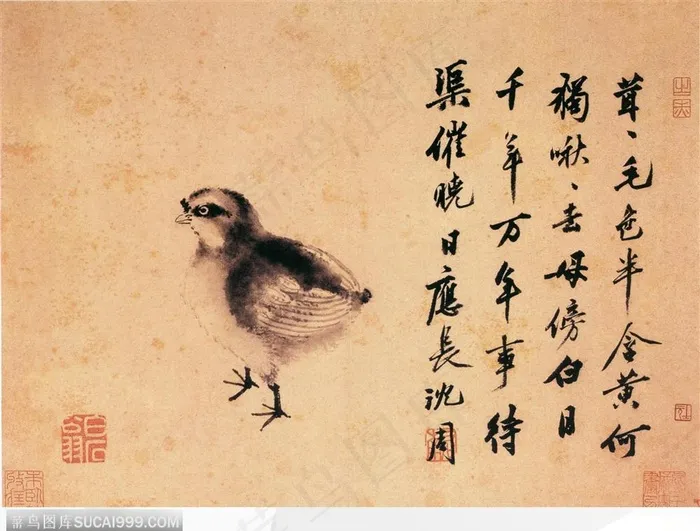 茸〻毛色半含黄何
獨啾〻去母傍白日
千年万年事待
渠催曉日應長沈周
菜鸟图库SUCAI999.COM